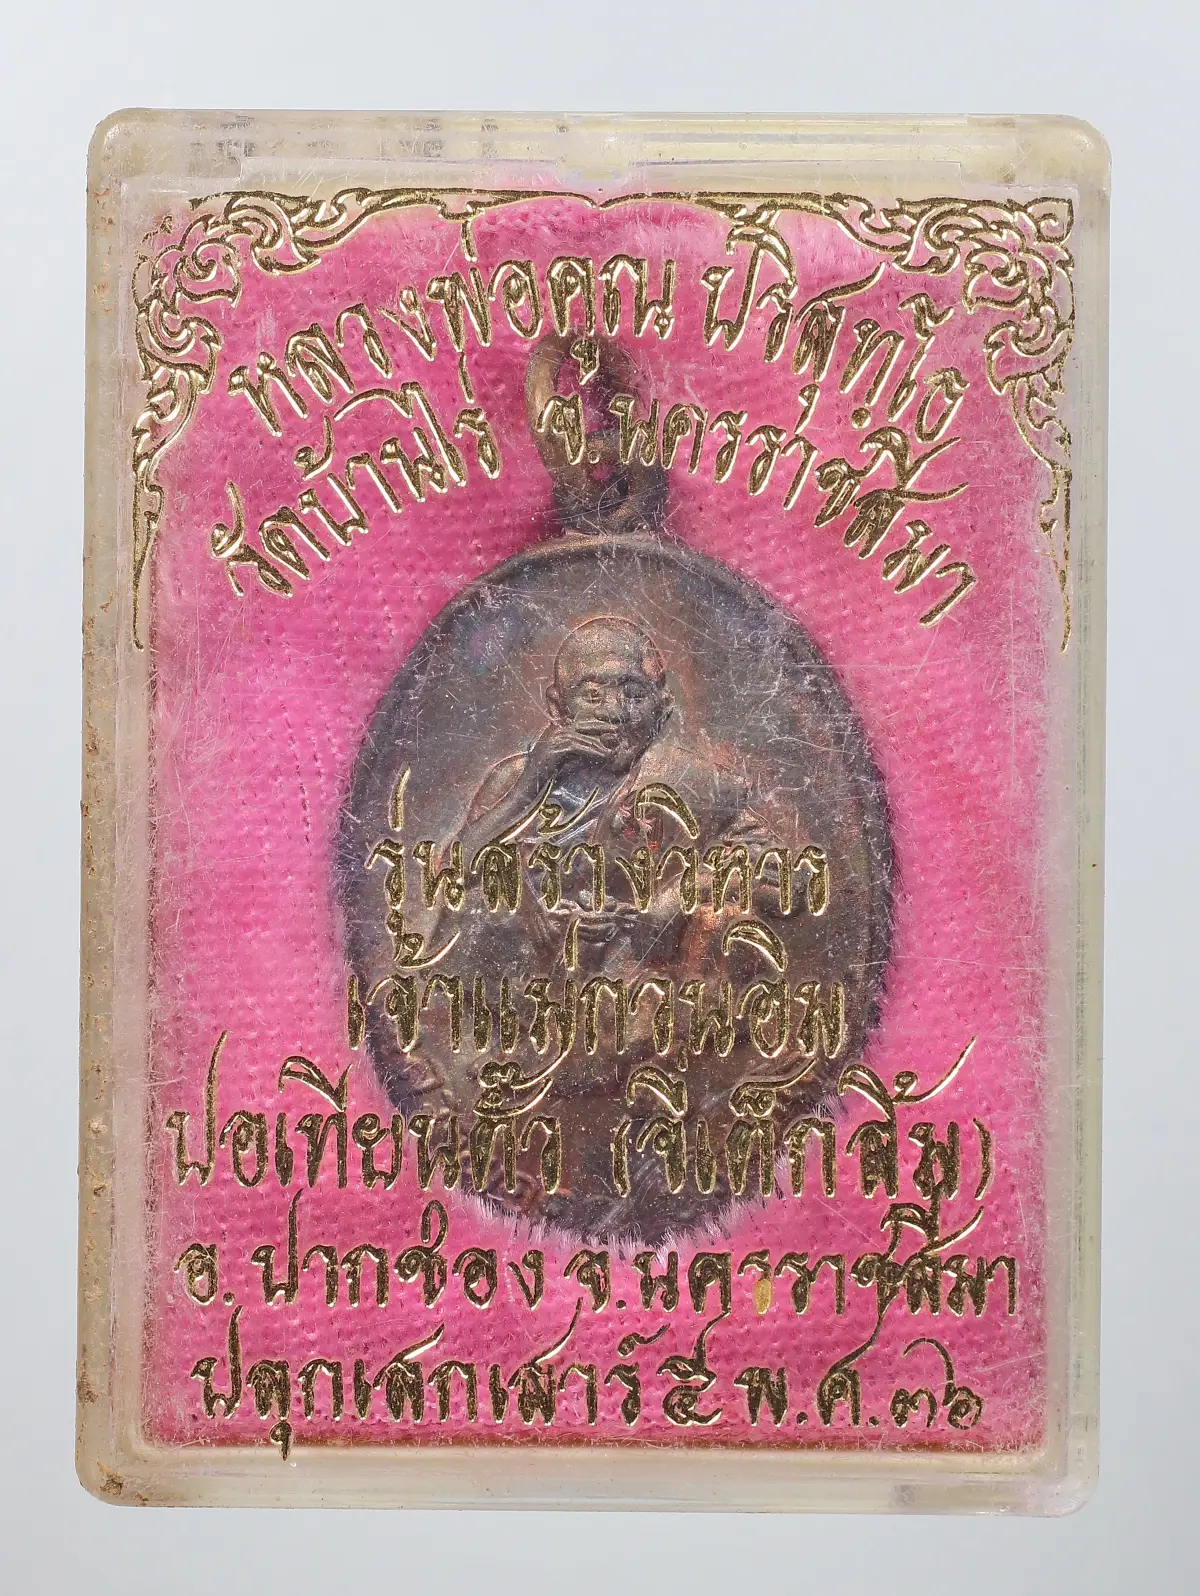 หลวงพ่อคูณ ปริสุทฺโธ
วัดบ้านไร่ จ.นครราชสีมา
รุ่นสร้างวิหาร
เจ้าแม่กวนอิม
ปอเทียนตั๊ว (จีเต็กลิ้ม)
อ.ปากช่อง จ.นครราชสีมา
ปลุกเสกเสาร์ ๕ พ.ศ.๓๖